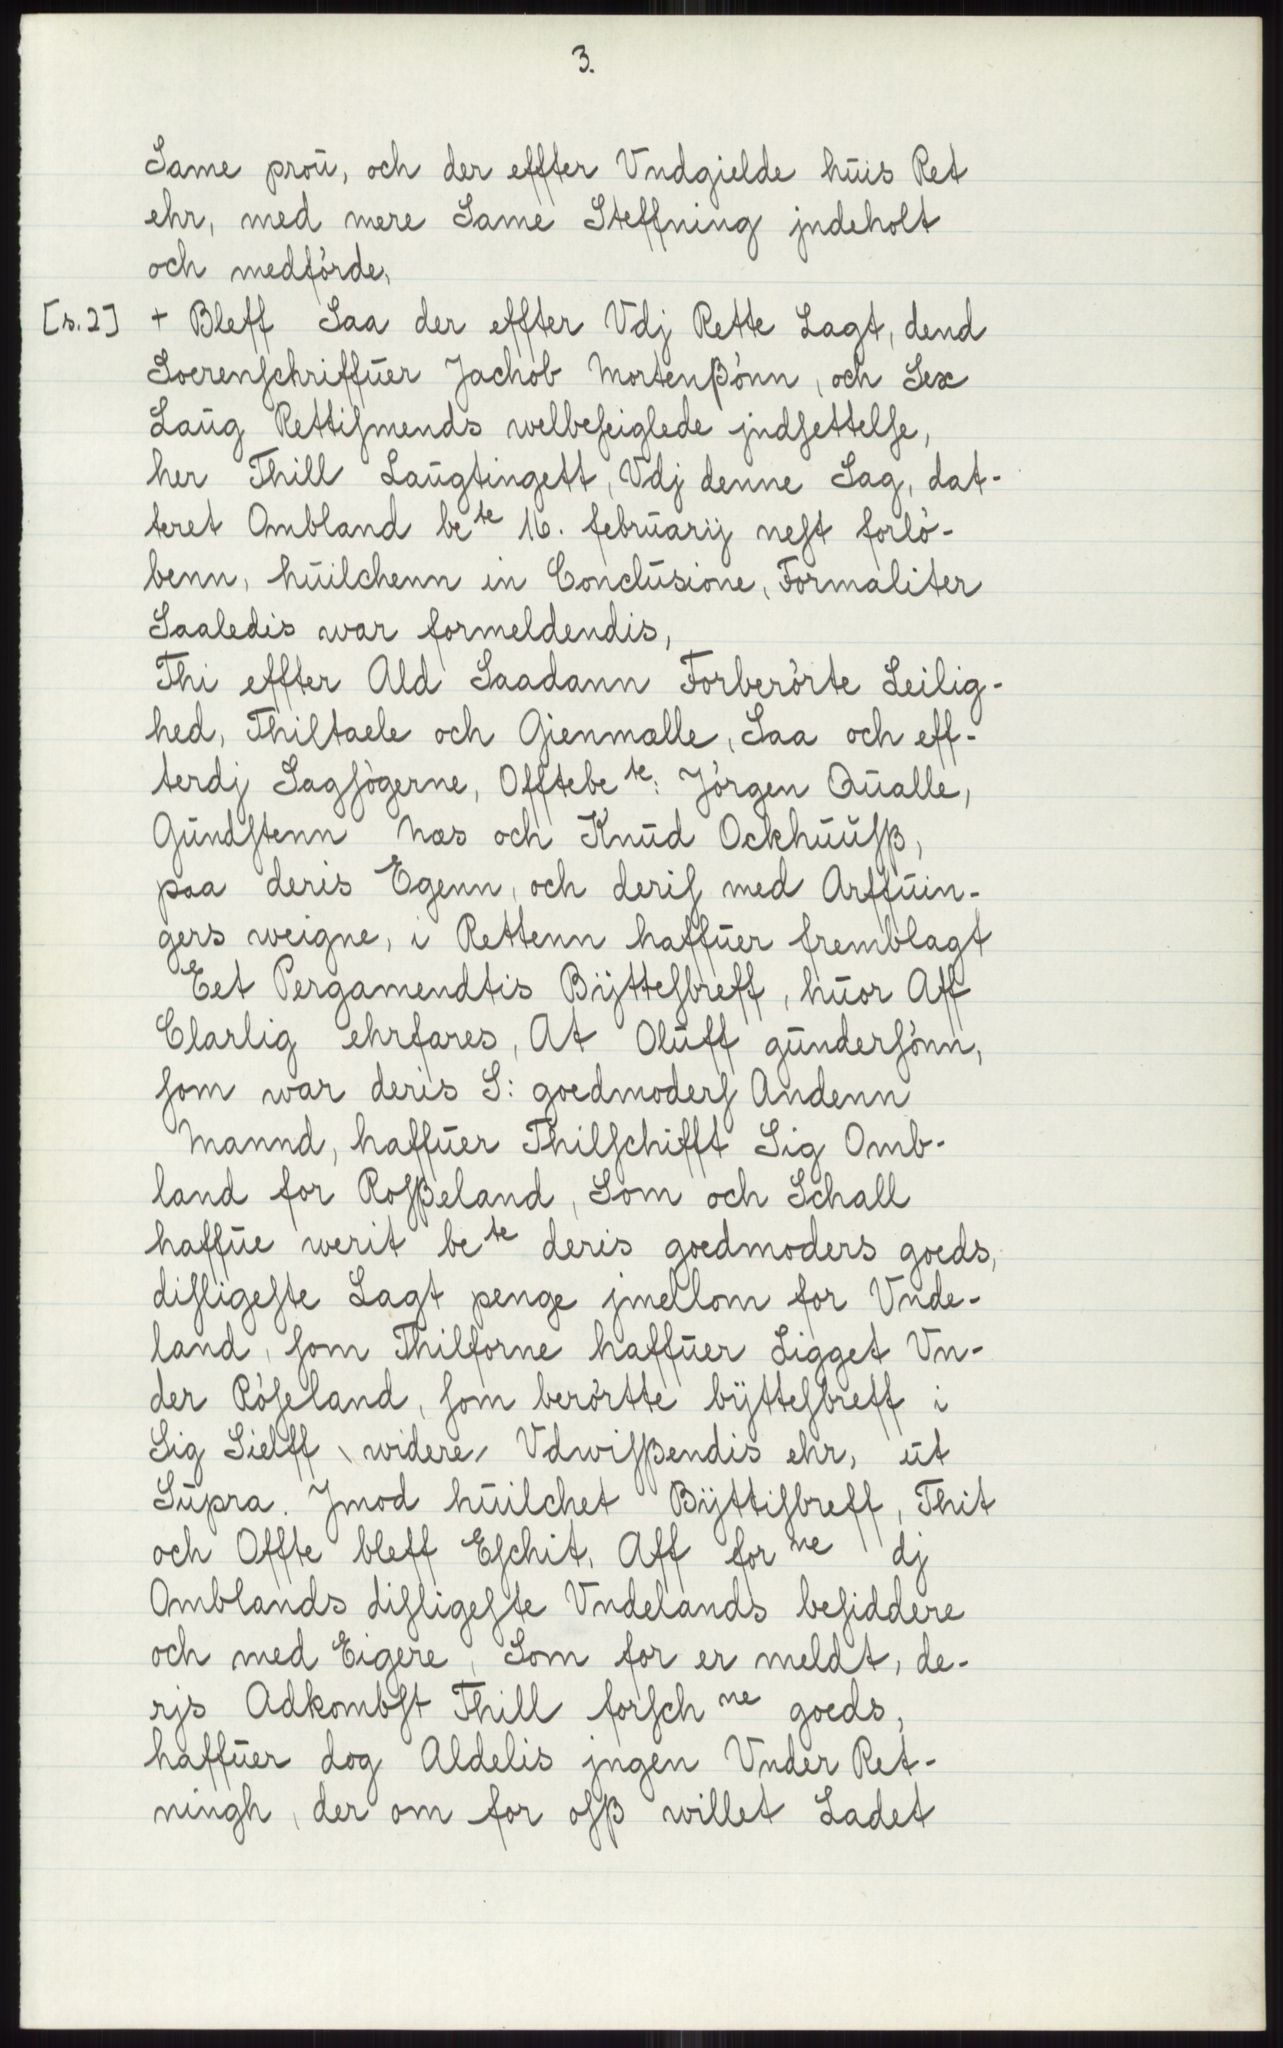 3.
Same proū, och der effter Vndgielde hūis Ret
ehr, med mere Same Steffning jndeholt
och medförde,
[s.2] + Bleff Saa der effter Vdj Rette Lagt, dend
Soerenschriffūer Jachob Mortenßönn, och Sex
Laūg Rettismends welbeseiglede jndsettelse,
her Thill Laūgtingett, Vdj denne Sag, dat-
teret Ombland be te 16. februarij nest forlö-
benn, hūilchenn in Conclūsione, Formaliter
Saaledis war formeldendis,
Thi effter Ald Saadann Forberörte Leilig-
hed, Thiltaele och Gienmælle, Saa och eff-
terdj Sagsögerne, Offtebe te: Jörgen Qūalle,
Gūndstenn Næs och Knūd Ockhūūsß,
paa deris Egenn, och deris med Arffūin-
gers weigne, i Rettenn haffūer fremblagt
Eet Pergamendtis Bÿttesbreff, hūor Aff
Clarlig ehrfares, At Olūff gūndersönn,
som war deris S: goedmoders Andenn
Mannd, haffūer Thilschifft Sig Omb-
land for Rosßeland, Som och Schall
haffūe werit be te deris goedmoders goeds,
disligeste Lagt penge jmellom for Vnde-
land, som Thilforne haffūer Ligget Vn-
der Röseland, som berörtte bÿttesbreff i
Sig Sielff \ widere / Vdwisßendis ehr, ūt
Sūpra. Jmod hūilchet Bÿttisbreff, Thit
och Offte bleff Eschit, Aff for ne dj
Omblands disligeste Vndelands besiddere
och med Eigere, Som for er meldt, de-
rjs Adkombst Thill forsch ne goeds,
haffūer dog Aldelis jngen Vnder Ret-
ningh, der om for osß willet Ladet